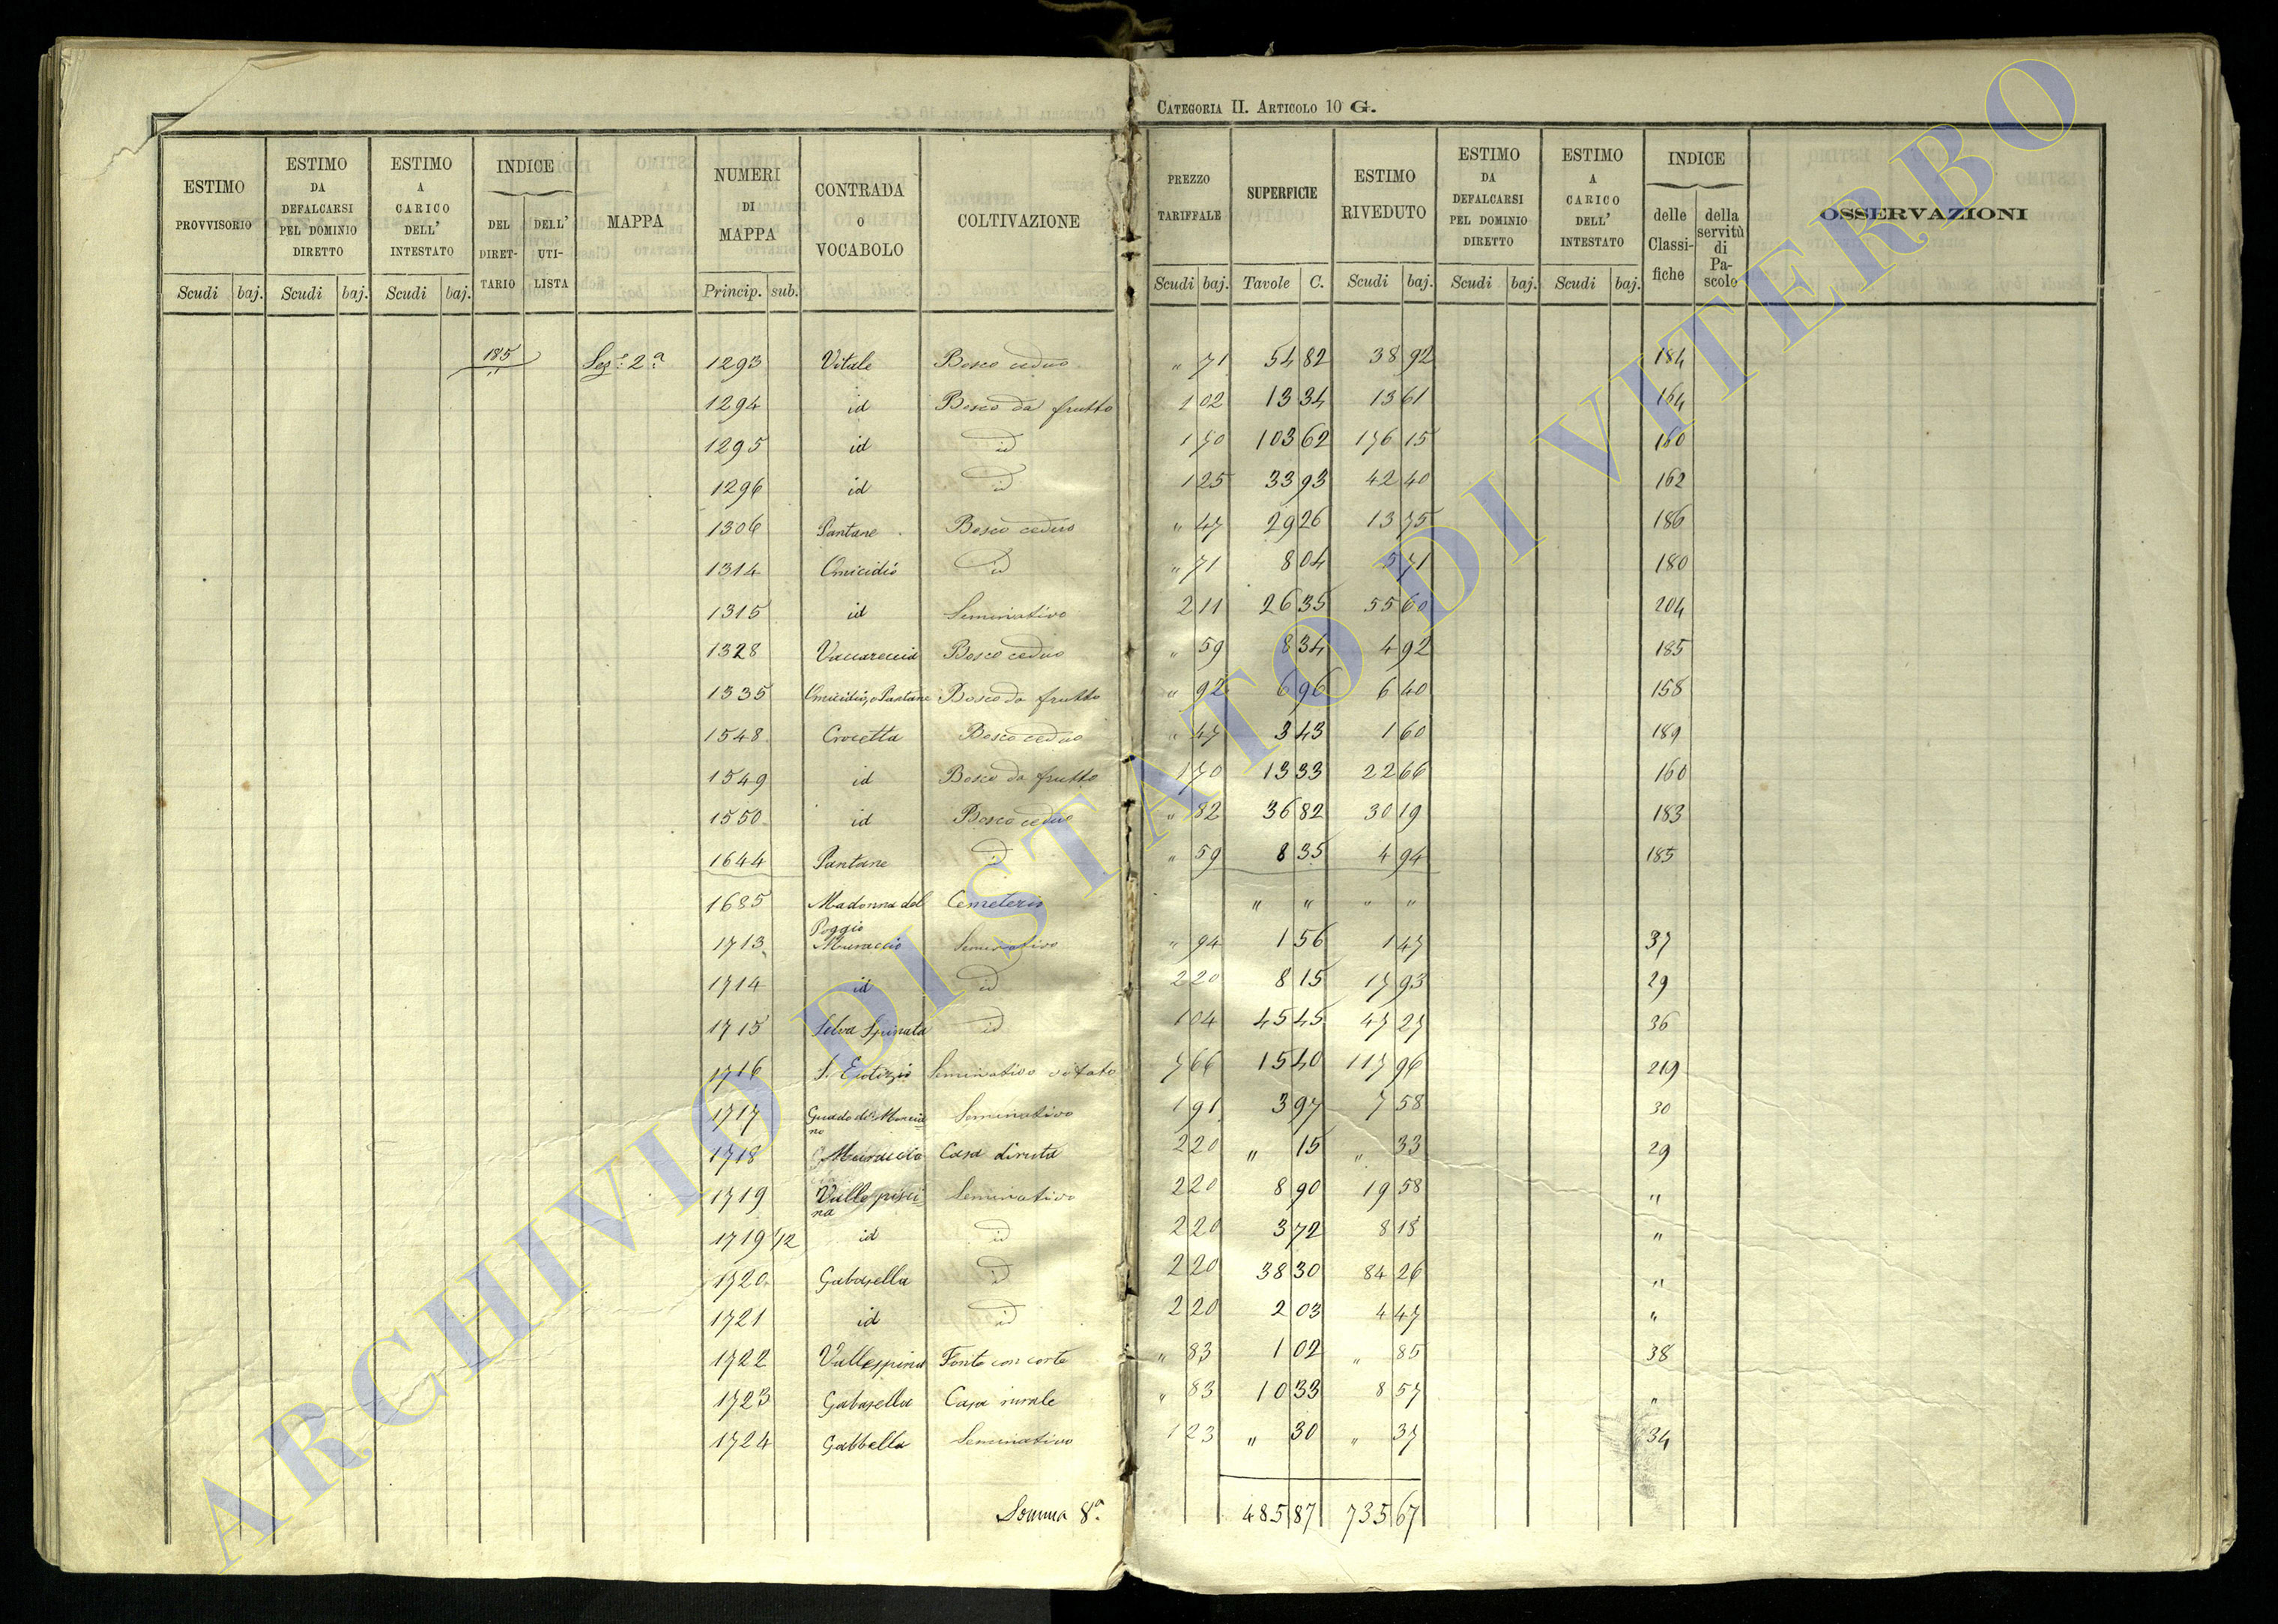 CATEGORIA II. ARTICOLO 10 G.
ESTIMO PROVVISORIO | ESTIMO DA DEFALCARSI PEL DOMINIO DIRETTO | ESTIMO A CARICO DELL' INTESTATO | INDICE | MAPPA | NUMERI DI MAPPA | CONTRADA O VOCABOLO | COLTIVAZIONE | PREZZO TARIFFALE | SUPERFICIE | ESTIMO RIVEDUTO | ESTIMO DA DEFALCARSI PEL DOMINIO DIRETTO | ESTIMO A CARICO DELL' INTESTATO | INDICE | OSSERVAZIONI
DEL DIRETTARIO | DELL' UTILISTA | delle Classifiche | della servitù di Pascolo
Scudi | baj. | Scudi | baj. | Scudi | baj. | Princip. | sub. | Scudi | baj. | Tavole | C. | Scudi | baj. | Scudi | baj. | Scudi | baj.
185 | Sez.e 2.a | 1293 | Vitale | Bosco ceduo | " 71 | 54 82 | 38 92 | 184
1294 | id | Bosco da frutto | 1 02 | 13 34 | 13 61 | 164
1295 | id | id | 1 70 | 103 62 | 176 15 | 160
1296 | id | id | 1 25 | 33 93 | 42 40 | 162
1306 | Pantane | Bosco ceduo | " 47 | 29 26 | 13 75 | 186
1314 | Omicidio | id | " 71 | 8 04 | 5 71 | 180
1315 | id | Seminativo | 2 11 | 26 35 | 55 60 | 204
1328 | Vaccareccia | Bosco ceduo | " 59 | 8 34 | 4 92 | 185
1335 | Omicidio, o Pantane | Bosco da frutto | " 92 | 6 96 | 6 40 | 158
1548 | Crocetta | Bosco ceduo | " 47 | 3 43 | 1 60 | 189
1549 | id | Bosco da frutto | 1 70 | 13 33 | 22 66 | 160
1550 | id | Bosco ceduo | " 82 | 36 82 | 30 19 | 183
1644 | Pantane | id | " 59 | 8 35 | 4 94 | 185
1685 | Madonna del Poggio | Cemeterio | " " | " "
1713 | Muraccio | Seminativo | " 94 | 1 56 | 1 47 | 37
1714 | id | id | 2 20 | 8 15 | 17 93 | 29
1715 | Selva Spinata | id | 1 04 | 45 45 | 47 27 | 36
1716 | S. Eutizio | Seminativo vitato | 7 66 | 15 40 | 117 96 | 219
1717 | Guado di Marciano | Seminativo | 1 91 | 3 97 | 7 58 | 30
1718 | Muraccio | Casa diruta | 2 20 | " 15 | " 33 | 29
1719 | Valle piscina | Seminativo | 2 20 | 8 90 | 19 58 | "
1719 1/2 | id | id | 2 20 | 3 72 | 8 18 | "
1720 | Gabasella | id | 2 20 | 38 30 | 84 26 | "
1721 | id | id | 2 20 | 2 03 | 4 47 | "
1722 | Vallespina | Fonte con corte | " 83 | 1 02 | " 85 | 38
1723 | Gabasella | Casa rurale | " 83 | 10 33 | 8 57 | "
1724 | Gabbella | Seminativo | 1 23 | " 30 | " 37 | 34
Somma 8.a | 485 87 | 735 67
ARCHIVIO DI STATO DI VITERBO